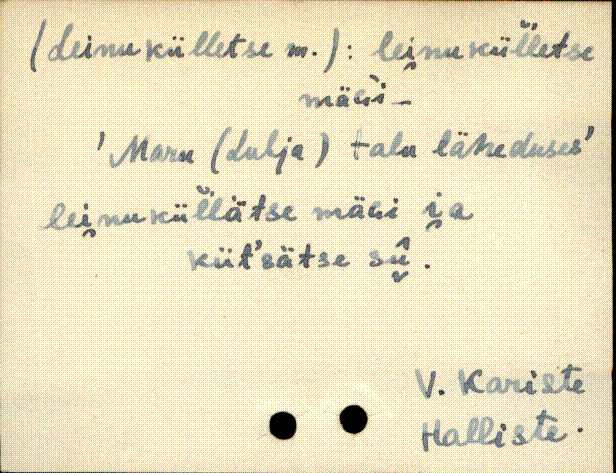 (Leinu külletse m.): lei̯nu kül̆l̆etse
mäGi –
'Maru (Lubja) talu läheduses'
lei̯nu kül̆l̆ätse mäGi i̯a
küt'sätse sû̬.
V. Kariste
Halliste.